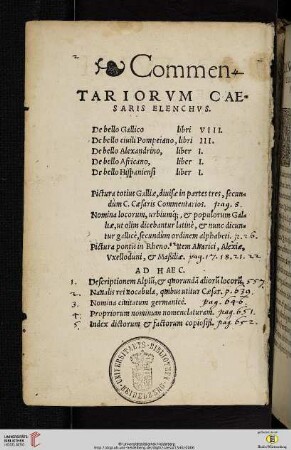 2
Commen-
TARIORVM CAE-
SARIS ELENCHVS.
De bello Gallico libri VIII.
De bello ciuili Pompeiano, libri III.
De bello Alexandrino, liber I.
De bello Africano, liber I.
De bello Hispaniensi liber I.
Pictura totius Galliæ, diuisæ in partes tres, secun-
dum C. Cæsaris Commentarios. pag. 5.
Nomina locorum, urbiumq;, & populorum Gal-
liæ, ut olim dicebantur latinè, & nunc dicun-
tur gallicè, secundum ordinem alphabeti. p. 6.
Pictura pontis in Rheno. Item Auarici, Alexiæ,
Vxelloduni, & Massiliæ. pag. 17. 18. 21. 22
AD HAEC.
1. Descriptionem Alpiũ, & quorundã aliorũ locorũ, 557.
2. Naualis rei uocabula, quibus utitur Cæsar. p. 639.
3. Nomina ciuitatum germanicè. pag. 646.
4. Propriorum nominum nomenclaturam. pag. 651.
5. Index dictorum & factorum copiosiss. pag. 652.
UNIVERSITÄTS-BIBLIOTHEK HEIDELBERG
UNIVERSITÄTS-
BIBLIOTHEK
HEIDELBERG
© Universitätsbibliothek Heidelberg